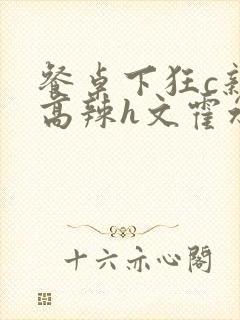 餐桌下狂c亲
高辣h文霍水
十六亦心阁